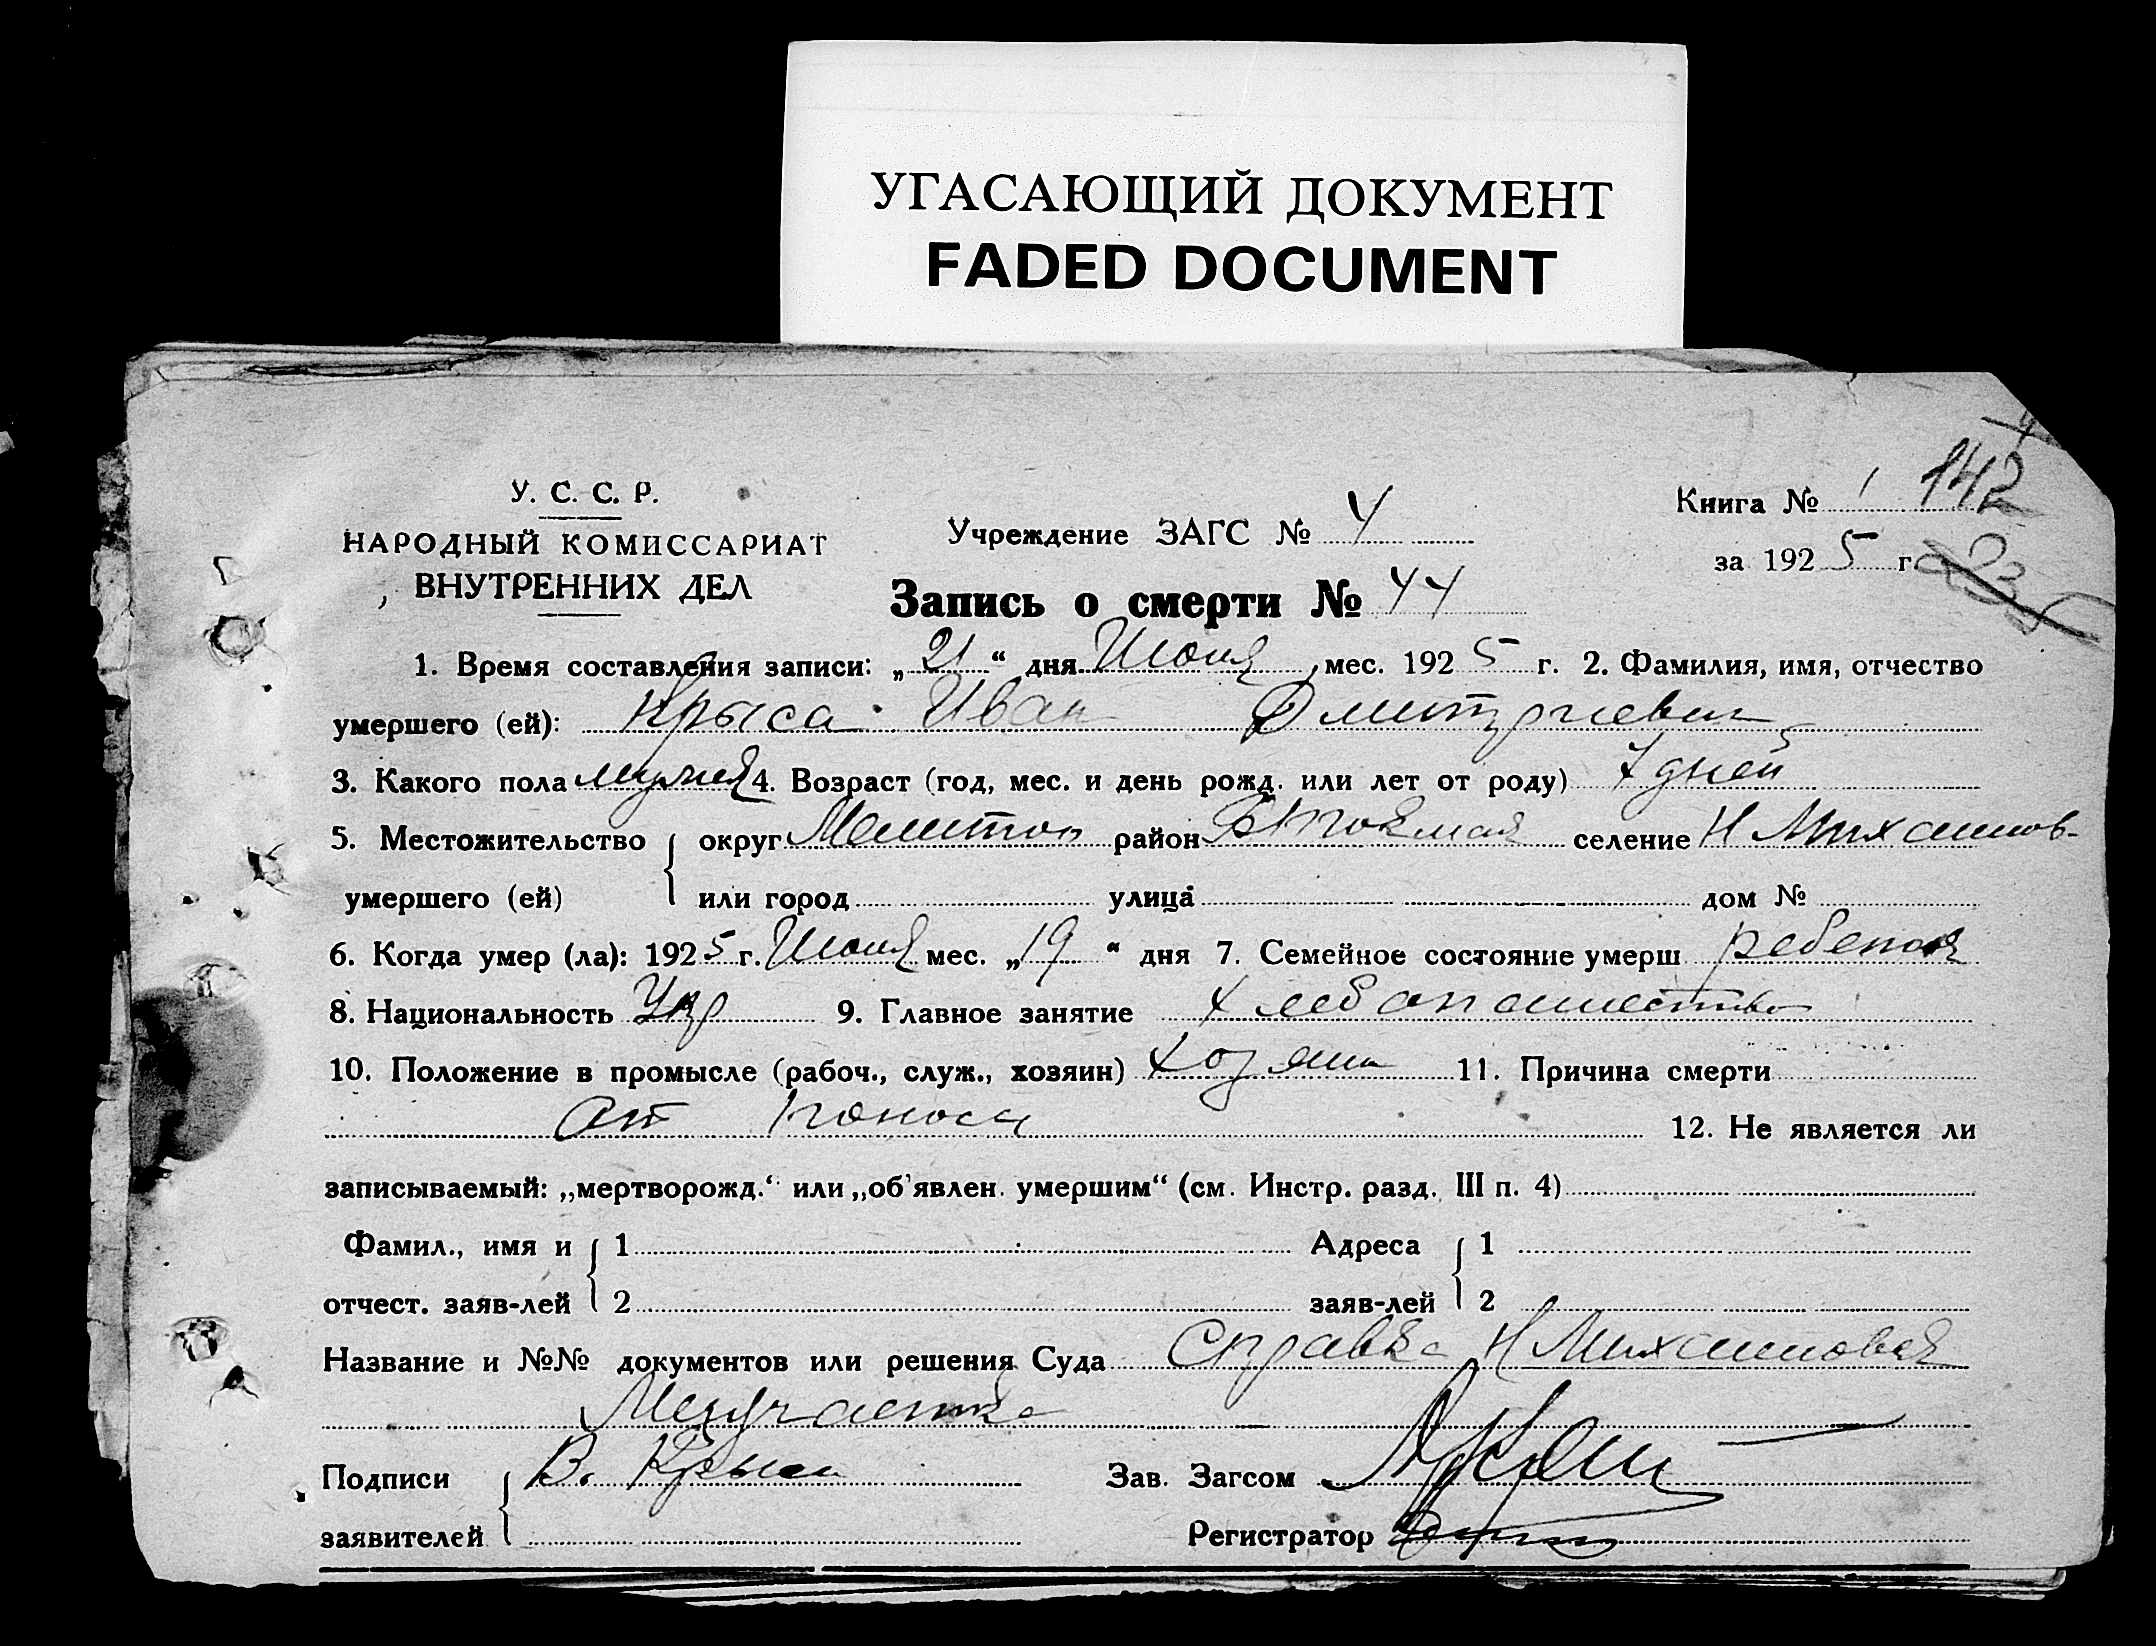 УГАСАЮЩИЙ ДОКУМЕНТ
FADED DOCUMENT
У. С. С. Р.
НАРОДНЫЙ КОМИССАРИАТ
ВНУТРЕННИХ ДЕЛ
Учреждение ЗАГС № 4
Книга № 1 142
за 1925 г.
Запись о смерти № 44
1. Время составления записи: „21“ дня Июня мес. 1925 г. 2. Фамилия, имя, отчество
умершего (ей): Крыса Иван Дмитриевич
3. Какого пола мужск 4. Возраст (год, мес. и день рожд. или лет от роду) 7 дней
5. Местожительство округ Мелитоп район селение Н Михайлов-
умершего (ей) или город улица дом №
6. Когда умер (ла): 1925 г. Июня мес. „19“ дня 7. Семейное состояние умерш ребенок
8. Национальность Укр 9. Главное занятие хлебопашество
10. Положение в промысле (рабоч., служ., хозяин) хозяин 11. Причина смерти
От поноса 12. Не является ли
записываемый: „мертворожд.“ или „об'явлен. умершим“ (см. Инстр. разд. III п. 4)
Фамил., имя и 1 Адреса 1
отчест. заяв-лей 2 заяв-лей 2
Название и №№ документов или решения Суда Справка Н Михайловка
Медучастка
Подписи В. Крыса Зав. Загсом
заявителей Регистратор